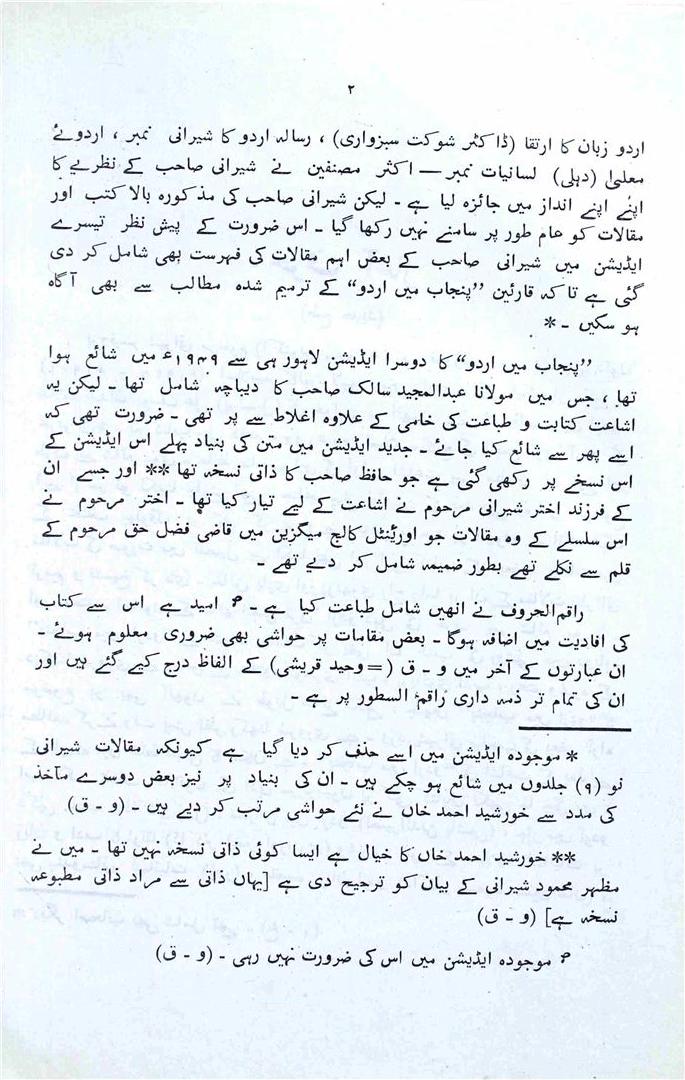 ۲
اردو زبان کا ارتقا (ڈاکٹر شوکت سبزواری) ، رسالہ اردو کا شیرانی نمبر ، اردوئے
معلیٰ (دہلی) لسانیات نمبر — اکثر مصنفین نے شیرانی صاحب کے نظریے کا
اپنے اپنے انداز میں جائزہ لیا ہے ۔ لیکن شیرانی صاحب کی مذکورہ بالا کتب اور
مقالات کو عام طور پر سامنے نہیں رکھا گیا ۔ اس ضرورت کے پیش نظر تیسرے
ایڈیشن میں شیرانی صاحب کے بعض اہم مقالات کی فہرست بھی شامل کر دی
گئی ہے تاکہ قارئین ”پنجاب میں اردو“ کے ترمیم شدہ مطالب سے بھی آگاہ
ہو سکیں ۔ *
”پنجاب میں اردو“ کا دوسرا ایڈیشن لاہور ہی سے ۱۹۴۹ء میں شائع ہوا
تھا ، جس میں مولانا عبدالمجید سالک صاحب کا دیباچہ شامل تھا ۔ لیکن یہ
اشاعت کتابت و طباعت کی خامی کے علاوہ اغلاط سے پر تھی ۔ ضرورت تھی کہ
اسے پھر سے شائع کیا جائے ۔ جدید ایڈیشن میں متن کی بنیاد پہلے اس ایڈیشن کے
اس نسخے پر رکھی گئی ہے جو حافظ صاحب کا ذاتی نسخہ تھا ** اور جسے ان
کے فرزند اختر شیرانی مرحوم نے اشاعت کے لیے تیار کیا تھا ۔ اختر مرحوم نے
اس سلسلے کے وہ مقالات جو اورئینٹل کالج میگزین میں قاضی فضل حق مرحوم کے
قلم سے نکلے تھے بطور ضمیمہ شامل کر دے تھے ۔
راقم الحروف نے انھیں شامل طباعت کیا ہے ۔ ؃ امید ہے اس سے کتاب
کی افادیت میں اضافہ ہوگا ۔ بعض مقامات پر حواشی بھی ضروری معلوم ہوئے ۔
ان عبارتوں کے آخر میں و ۔ ق (= وحید قریشی) کے الفاظ درج کیے گئے ہیں اور
ان کی تمام تر ذمہ داری راقم السطور پر ہے ۔
* موجودہ ایڈیشن میں اسے حذف کر دیا گیا ہے کیونکہ مقالات شیرانی
نو (۹) جلدوں میں شائع ہو چکے ہیں ۔ ان کی بنیاد پر نیز بعض دوسرے مآخذ
کی مدد سے خورشید احمد خاں نے نئے حواشی مرتب کر دیے ہیں ۔ (و ۔ ق)
** خورشید احمد خاں کا خیال ہے ایسا کوئی ذاتی نسخہ نہیں تھا ۔ میں نے
مظہر محمود شیرانی کے بیان کو ترجیح دی ہے [یہاں ذاتی سے مراد ذاتی مطبوعہ
نسخہ ہے] (و ۔ ق)
؃ موجودہ ایڈیشن میں اس کی ضرورت نہیں رہی ۔ (و ۔ ق)